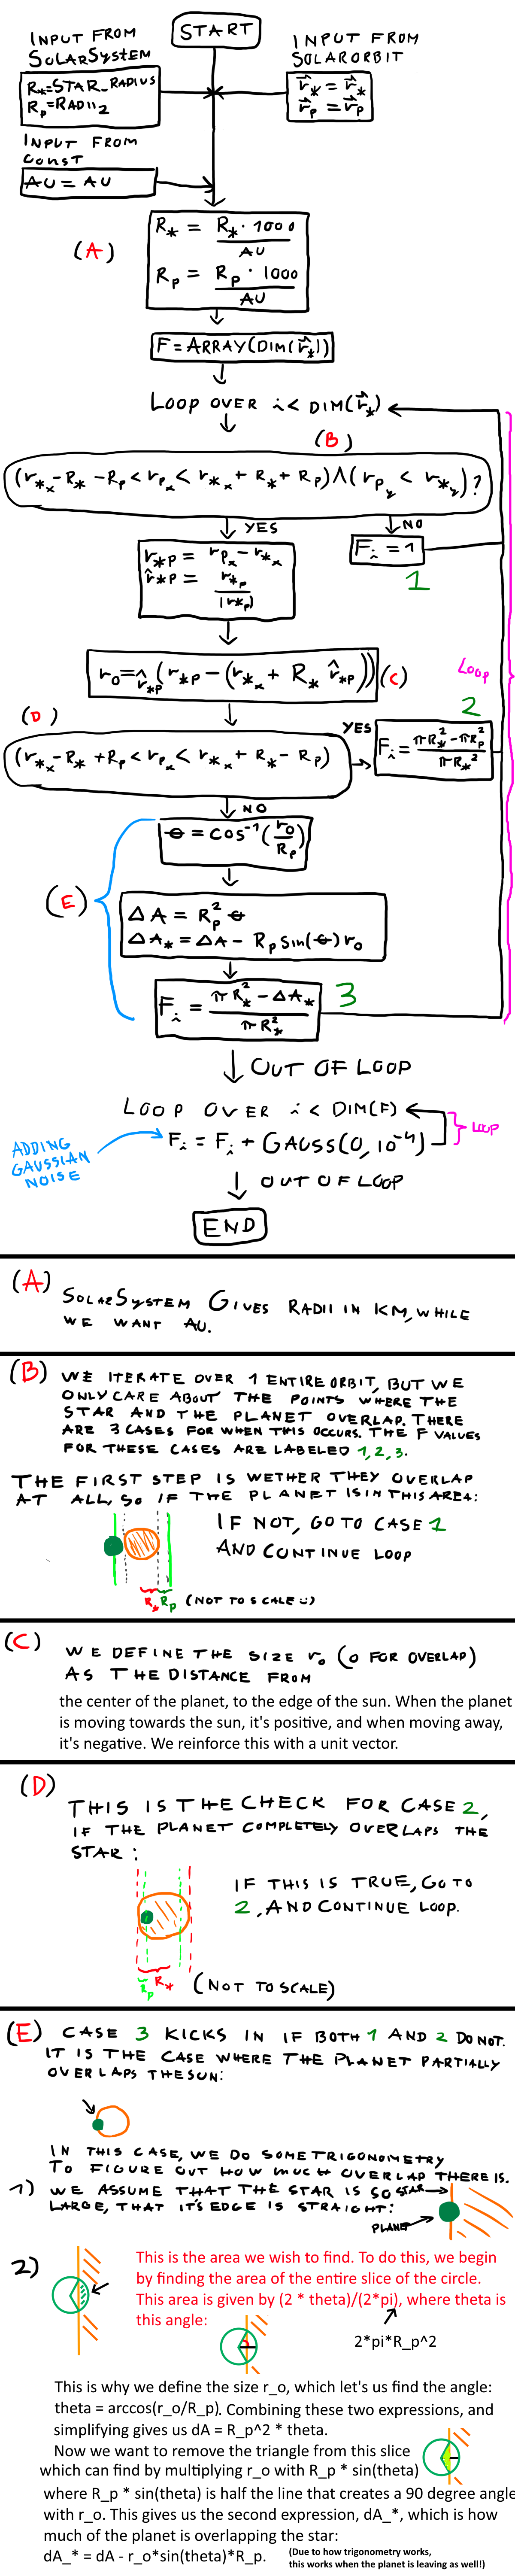 START
INPUT FROM
SOLARSYSTEM
R* = STAR_RADIUS
R_p = RADII_2
INPUT FROM
SOLARORBIT
r⃗_* = r⃗_*
r⃗_p = r⃗_p
INPUT FROM
CONST
AU = AU
(A)
R_* = R_* · 1000 / AU
R_p = R_p · 1000 / AU
F = ARRAY(DIM(r⃗_*))
LOOP OVER i < DIM(r⃗_*)
(B)
(r_*x - R_* - R_p < r_px < r_*x + R_* + R_p) ∧ (r_py < r_*y)?
YES
NO
F_i = 1
1
r_*p = r_px - r_*x
r̂_*p = r_*p / |r_*p|
r_o = r̂_*p (r_*p - (r_*x + R_* r̂_*p))
(C)
LOOP
(D)
(r_*x - R_* + R_p < r_px < r_*x + R_* - R_p)
YES
2
F_i = πR_*^2 - πR_p^2 / πR_*^2
NO
(E)
θ = cos^-1 (r_o / R_p)
ΔA = R_p^2 θ
ΔA_* = ΔA - R_p sin(θ) r_o
F_i = πR_*^2 - ΔA_* / πR_*^2
3
OUT OF LOOP
LOOP OVER i < DIM(F)
F_i = F_i + GAUSS(0, 10^-4)
LOOP
ADDING
GAUSSIAN
NOISE
OUT OF LOOP
END
(A) SOLARSYSTEM GIVES RADII IN KM, WHILE
WE WANT AU.
(B) WE ITERATE OVER 1 ENTIRE ORBIT, BUT WE
ONLY CARE ABOUT THE POINTS WHERE THE
STAR AND THE PLANET OVERLAP. THERE
ARE 3 CASES FOR WHEN THIS OCCURS. THE F VALUES
FOR THESE CASES ARE LABELED 1, 2, 3.
THE FIRST STEP IS WETHER THEY OVERLAP
AT ALL, SO IF THE PLANET IS IN THIS AREA:
IF NOT, GO TO CASE 1
AND CONTINUE LOOP
R_* R_p (NOT TO SCALE :))
(C) WE DEFINE THE SIZE r_o (o FOR OVERLAP)
AS THE DISTANCE FROM
the center of the planet, to the edge of the sun. When the planet
is moving towards the sun, it's positive, and when moving away,
it's negative. We reinforce this with a unit vector.
(D)
THIS IS THE CHECK FOR CASE 2,
IF THE PLANET COMPLETELY OVERLAPS THE
STAR:
IF THIS IS TRUE, GO TO
2, AND CONTINUE LOOP.
R_p R_* (NOT TO SCALE)
(E) CASE 3 KICKS IN IF BOTH 1 AND 2 DO NOT.
IT IS THE CASE WHERE THE PLANET PARTIALLY
OVERLAPS THE SUN:
IN THIS CASE, WE DO SOME TRIGONOMETRY
TO FIGURE OUT HOW MUCH OVERLAP THERE IS.
1) WE ASSUME THAT THE STAR IS SO
LARGE, THAT IT'S EDGE IS STRAIGHT:
STAR
PLANET
2)
This is the area we wish to find. To do this, we begin
by finding the area of the entire slice of the circle.
This area is given by (2 * theta)/(2*pi), where theta is
this angle:
2*pi*R_p^2
This is why we define the size r_o, which let's us find the angle:
theta = arccos(r_o/R_p). Combining these two expressions, and
simplifying gives us dA = R_p^2 * theta.
Now we want to remove the triangle from this slice
which can find by multiplying r_o with R_p * sin(theta)
where R_p * sin(theta) is half the line that creates a 90 degree angle
with r_o. This gives us the second expression, dA_*, which is how
much of the planet is overlapping the star:
dA_* = dA - r_o*sin(theta)*R_p.
(Due to how trigonometry works,
this works when the planet is leaving as well!)